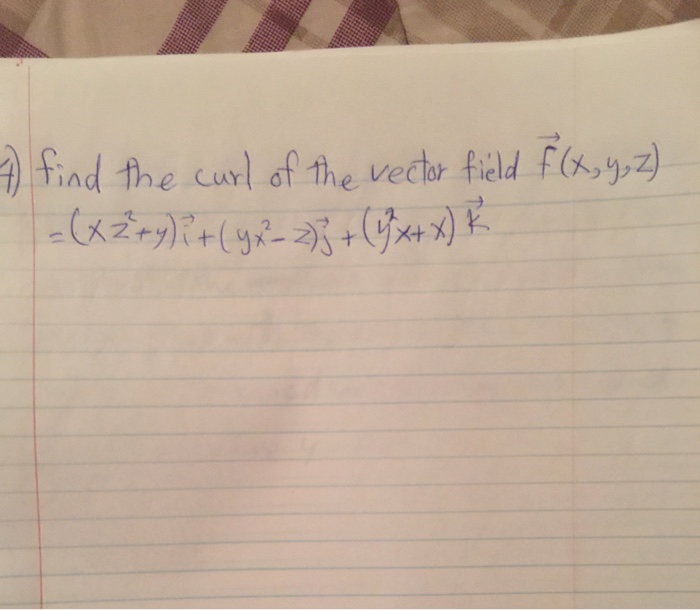 4) find the curl of the vector field F⃗(x,y,z)
=(xz²+y)i⃗+(yx²-z)j⃗+(y²x+x)k⃗